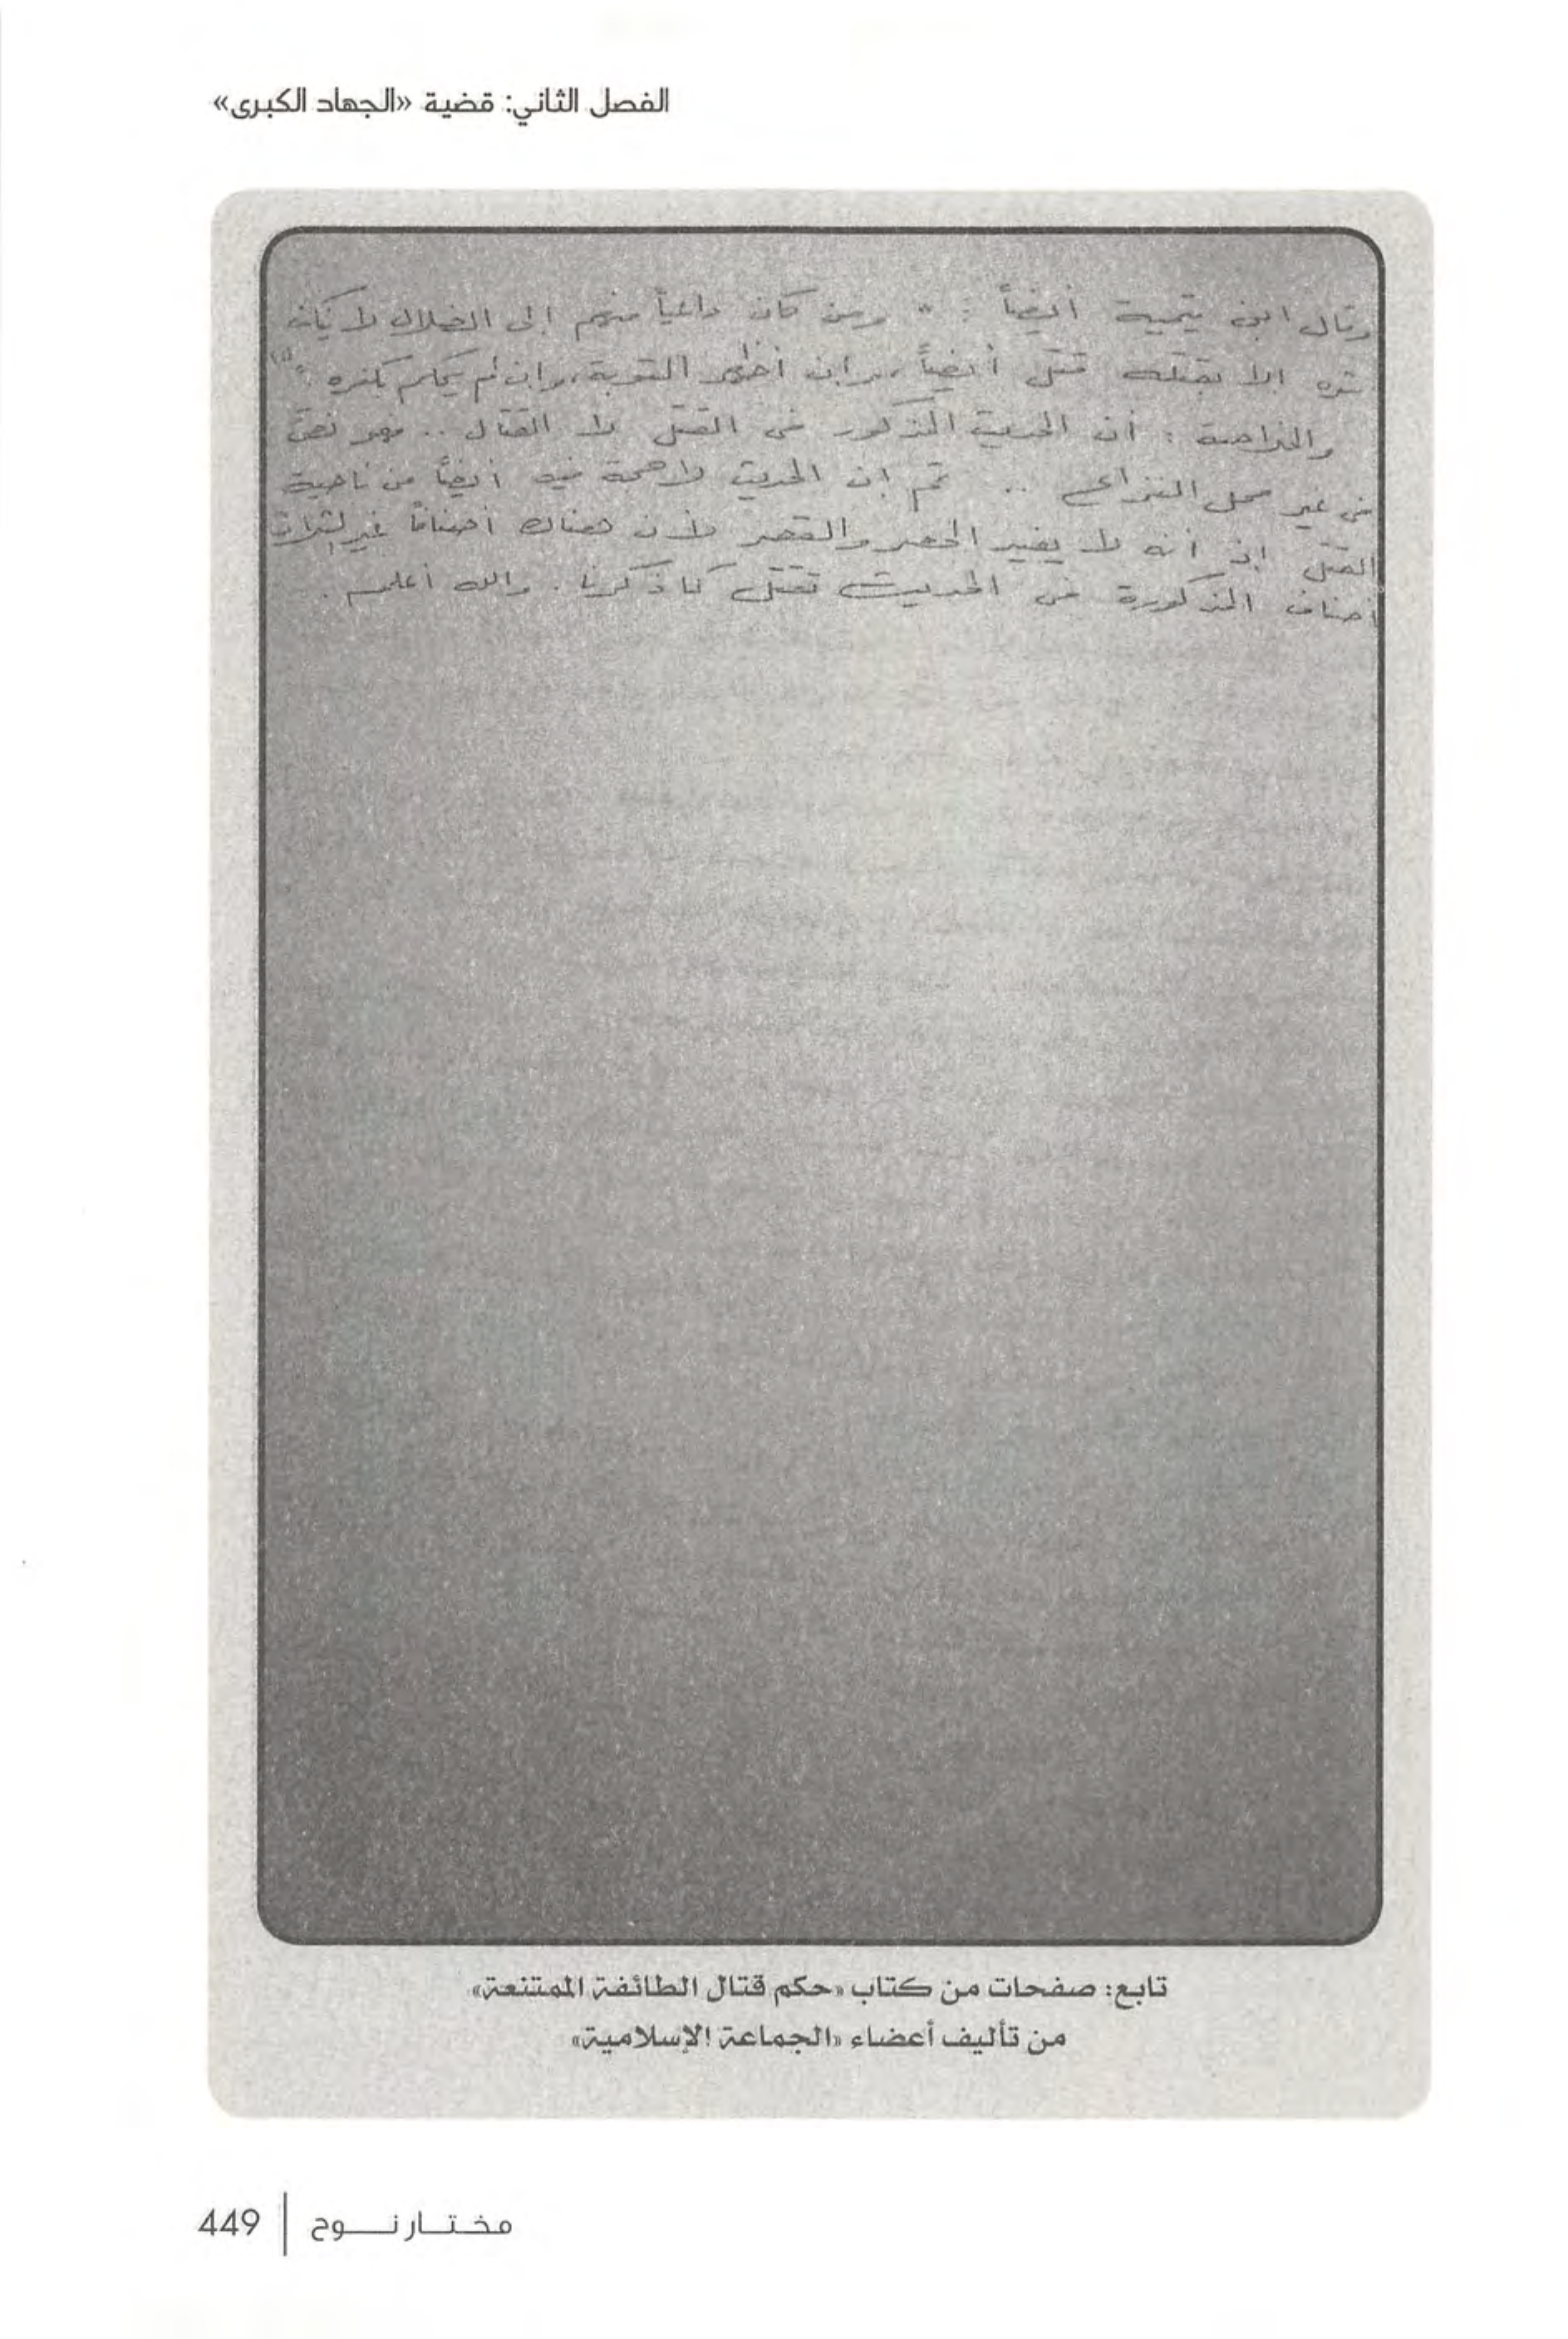 الفصل الثاني: قضية «الجهاد الكبرى»
وقال ابن تيمية أيضاً : " ومن كان داعياً منهم إلى الضلال لا يكف
شره إلا بقتله قتل أيضاً، وإن أظهر التوبة، وإن لم يحكم بكفره ."(١)
والخلاصة : أن الحديث المذكور فى القتل لا القتال .. فهو نص
فى غير محل النزاع .. ثم إن الحديث لا حجة فيه أيضاً من ناحية
القتل إذ أنه لا يفيد الحصر والقصر لأن هناك أصنافاً غير الثلاث
أصناف المذكورة فى الحديث تقتل كما ذكرنا . والله أعلم .
تابع: صفحات من كتاب «حكم قتال الطائفة الممتنعة»
من تأليف أعضاء «الجماعة الإسلامية»
مختار نوح | 449